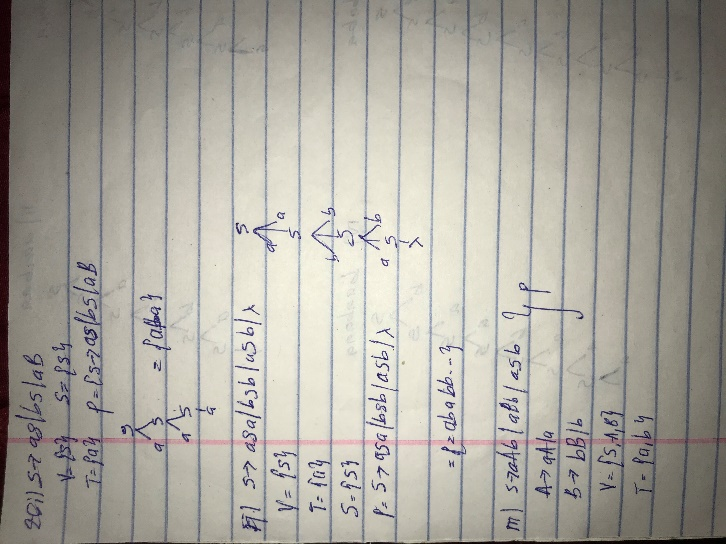 S→ aS|bS|aB
V = {S} S = {S}
T = {a} P = {S→aS|bS|aB
S
a S
a S
a
II) S→ aSa|bSb|aSb|λ
V = {S}
T = {a}
S = {S}
P = S→ aSa|bSb|aSb|λ
S
a S a
b S b
a S b
λ
= ababb...}
III) S→aAb|aBb|aSb } P
A→aA|a
B→bB|b
V = {S,A,B}
T = {a,b}